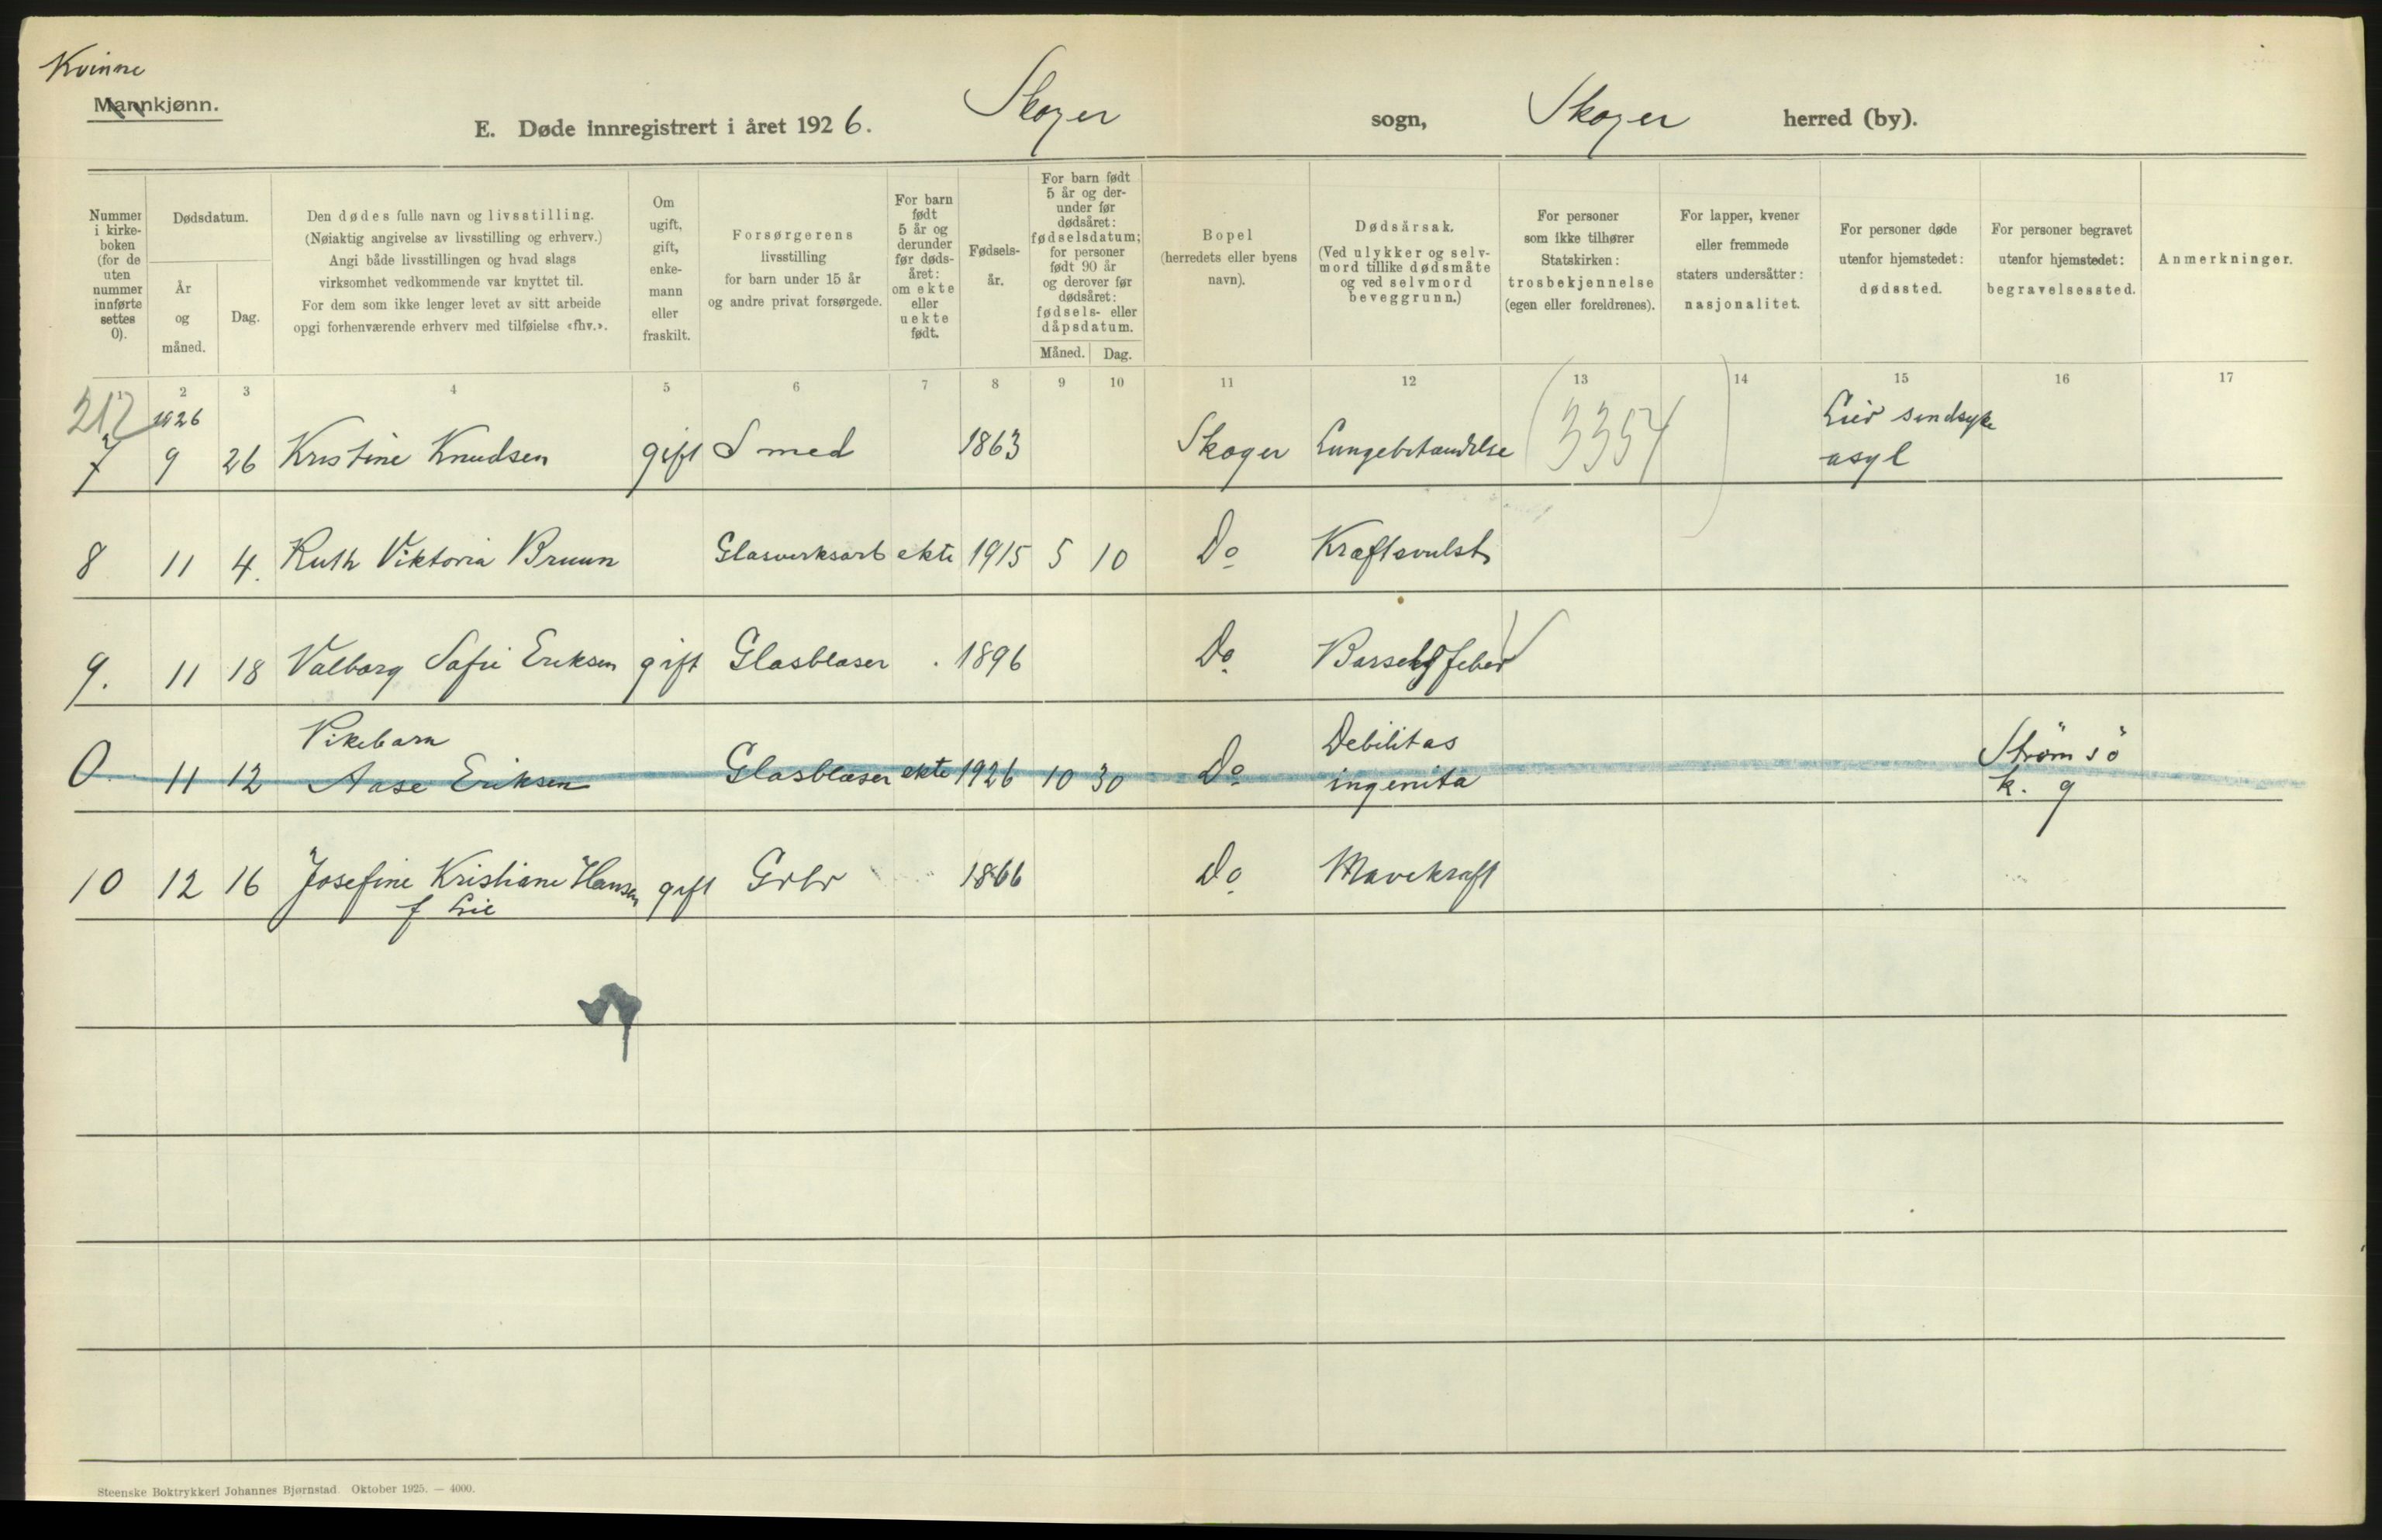 Kvinne
Mannkjønn.
E. Døde innregistrert i året 1926. Skoger sogn, Skoger herred (by).
Nummer i kirke-boken (for de uten nummer innførte settes 0).
Dødsdatum.
År og måned.
Dag.
Den dødes fulle navn og livsstilling.
(Nøiaktig angivelse av livsstilling og erhverv.)
Angi både livsstillingen og hvad slags
virksomhet vedkommende var knyttet til.
For dem som ikke lenger levet av sitt arbeide
opgi forhenværende erhverv med tilføielse «fhv.».
Om ugift, gift, enke-mann eller fraskilt.
Forsørgerens
livsstilling
for barn under 15 år
og andre privat forsørgede.
For barn født 5 år og derunder før døds-året: om ekte eller uekte født.
Fødsels-år.
For barn født 5 år og der-under før dødsåret: fødselsdatum; for personer født 90 år og derover før dødsåret: fødsels- eller dåpsdatum.
Måned. Dag.
Bopel
(herredets eller byens
navn).
Dødsårsak.
(Ved ulykker og selv-
mord tillike dødsmåte
og ved selvmord
beveggrunn.)
For personer
som ikke tilhører
Statskirken:
trosbekjennelse
(egen eller foreldrenes).
For lapper, kvener
eller fremmede
staters undersåtter:
nasjonalitet.
For personer døde
utenfor hjemstedet:
dødssted.
For personer begravet
utenfor hjemstedet:
begravelsessted.
Anmerkninger.
1 2 3 4 5 6 7 8 9 10 11 12 13 14 15 16 17
212 1926
7 9 26 Kristine Knudsen gift Smed 1863 Skoger Lungebetændelse (3354) Lier sindsyke
asyl
8 11 4. Ruth Viktoria Bruun Glasverksarb ekte 1915 5 10 Do Kræftsvulst
9. 11 18 Valborg Sofie Eriksen gift Glasblaser 1896 Do Barselsfeber
Pikebarn Debilitas Strömsö
0. 11 12 Aase Eriksen Glasblæser ekte 1926 10 30 Do ingenita k. g
10 12 16 Josefine Kristiane Hansen gift Grbr 1866 Do Mavekræft
f Lie
Steenske Boktrykkeri Johannes Bjørnstad. Oktober 1925. — 4000.